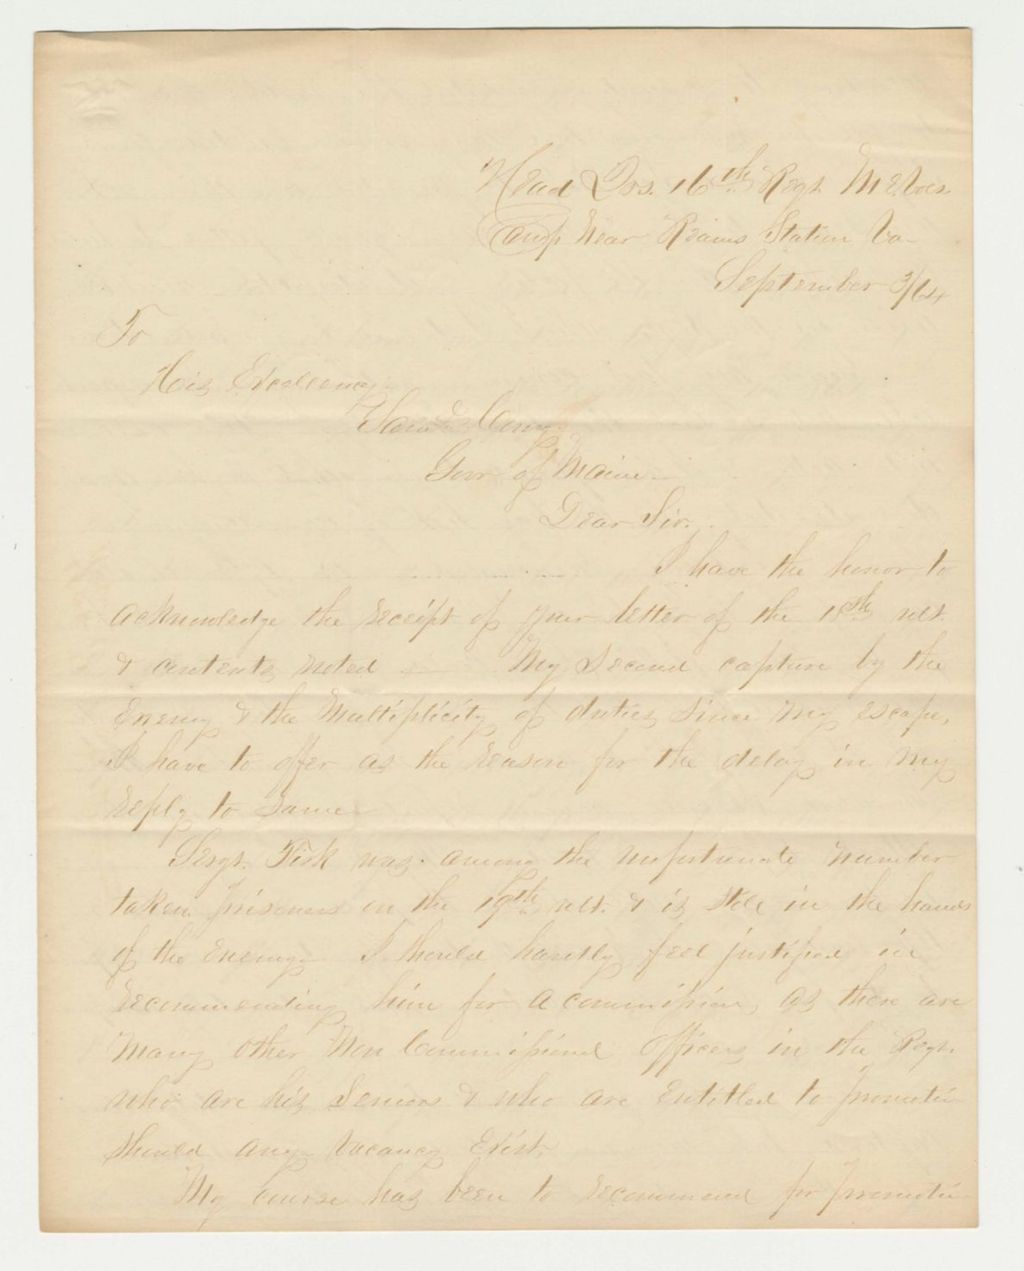 Head Qrs. 16th Regt M E Vols
Camp Near Reams Station Va-
September 3/64
To
His Excellency
Saml Cony
Govr of Maine-
Dear Sir.
I have the honor to
acknowledge the receipt of your letter of the 18th ult.
& contents noted - My Second capture by the
Enemy & the Multiplicity of duties since my escape,
I have to offer as the reason for the delay in my
reply to same
Sergt. Fisk was among the unfortunate number
taken prisoners on the 19th ult. & is still in the hands
of the Enemy- I should hardly feel justified in
recommending him for a commission, as there are
many other Non Commissioned Officers in the Regt.
who are his Seniors & who are Entitled to promotion
should any vacancy Exist.
My course has been to recommend for promotion